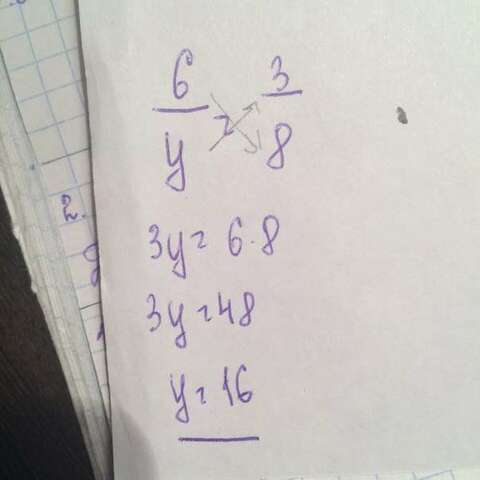 6/y = 3/8
3y = 6·8
3y = 48
y = 16
2.